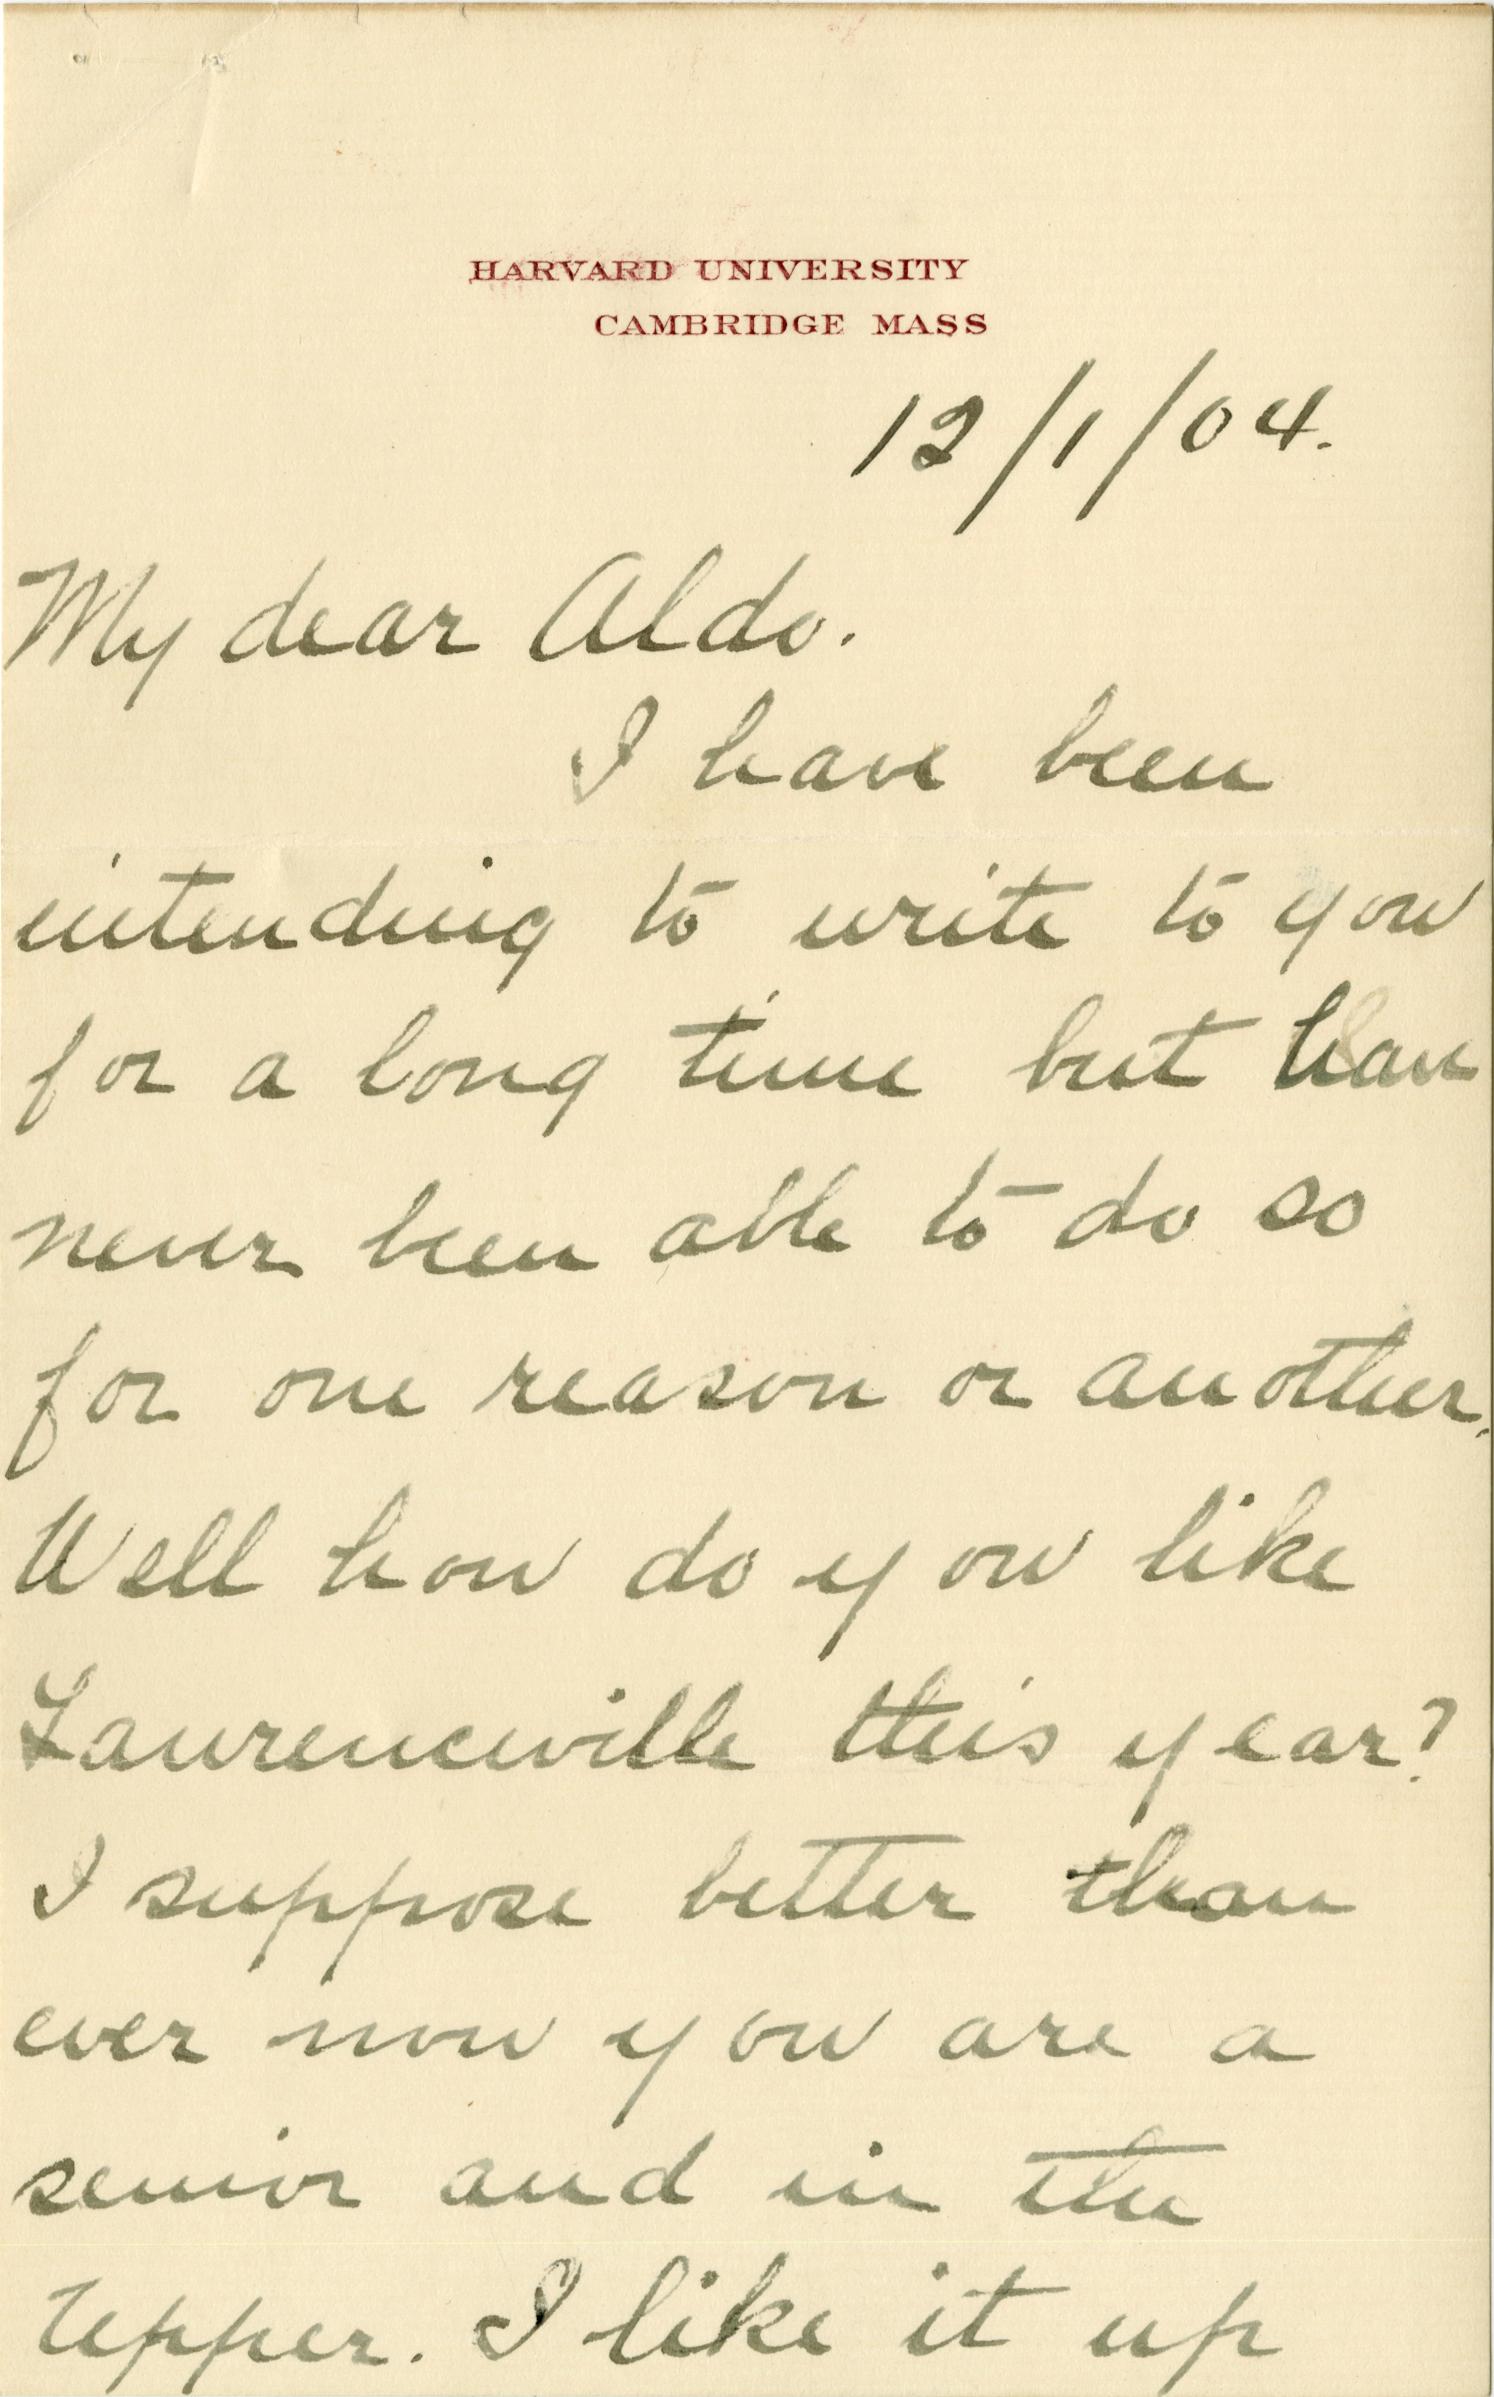 HARVARD UNIVERSITY
CAMBRIDGE MASS
12/1/04.
My dear Aldo.
I have been
intending to write to you
for a long time but have
never been able to do so
for one reason or another.
Well how do you like
Lawrenceville this year?
I suppose better than
ever now you are a
senior and in the
Upper. I like it up